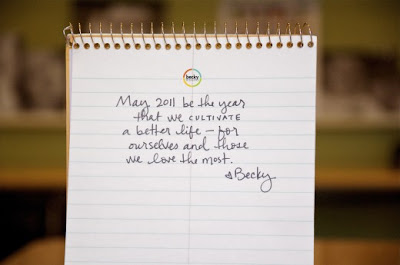 becky
May 2011 be the year
that we CULTIVATE
a better life – for
ourselves and those
we love the most.
Becky